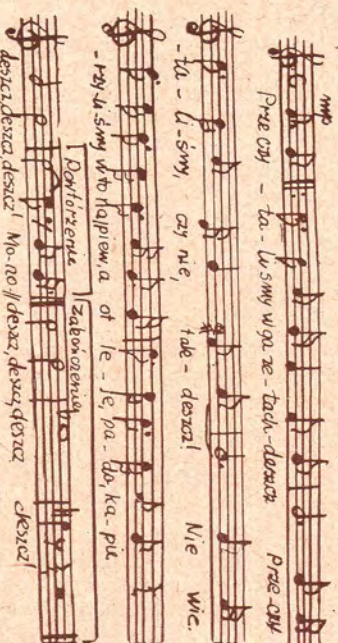 mp
Prze czy - ta - liśmy w ga ze - tach - deszcz Prze - czy
- ta - li - śmy, czy nie, tak - deszcz! Nie wie.
- rzy li śmy w to najpierw, a ot le - je, pa - da, ka - pie
Powtórzenie Zakończenie
deszcz, deszcz, deszcz! Mo - no - // deszcz, deszcz, deszcz deszcz!